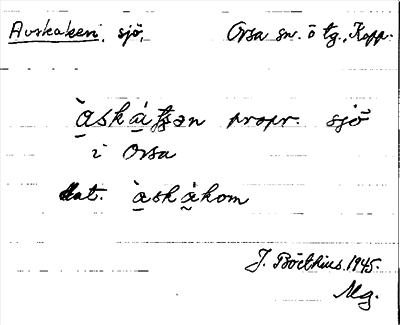 Avskakeri, sjö, Orsa sn. ö tg., Kopp.
àskàʧən propr. sjö
i Orsa
dat. àskàkom
J. Boëthius 1945.
Mg.